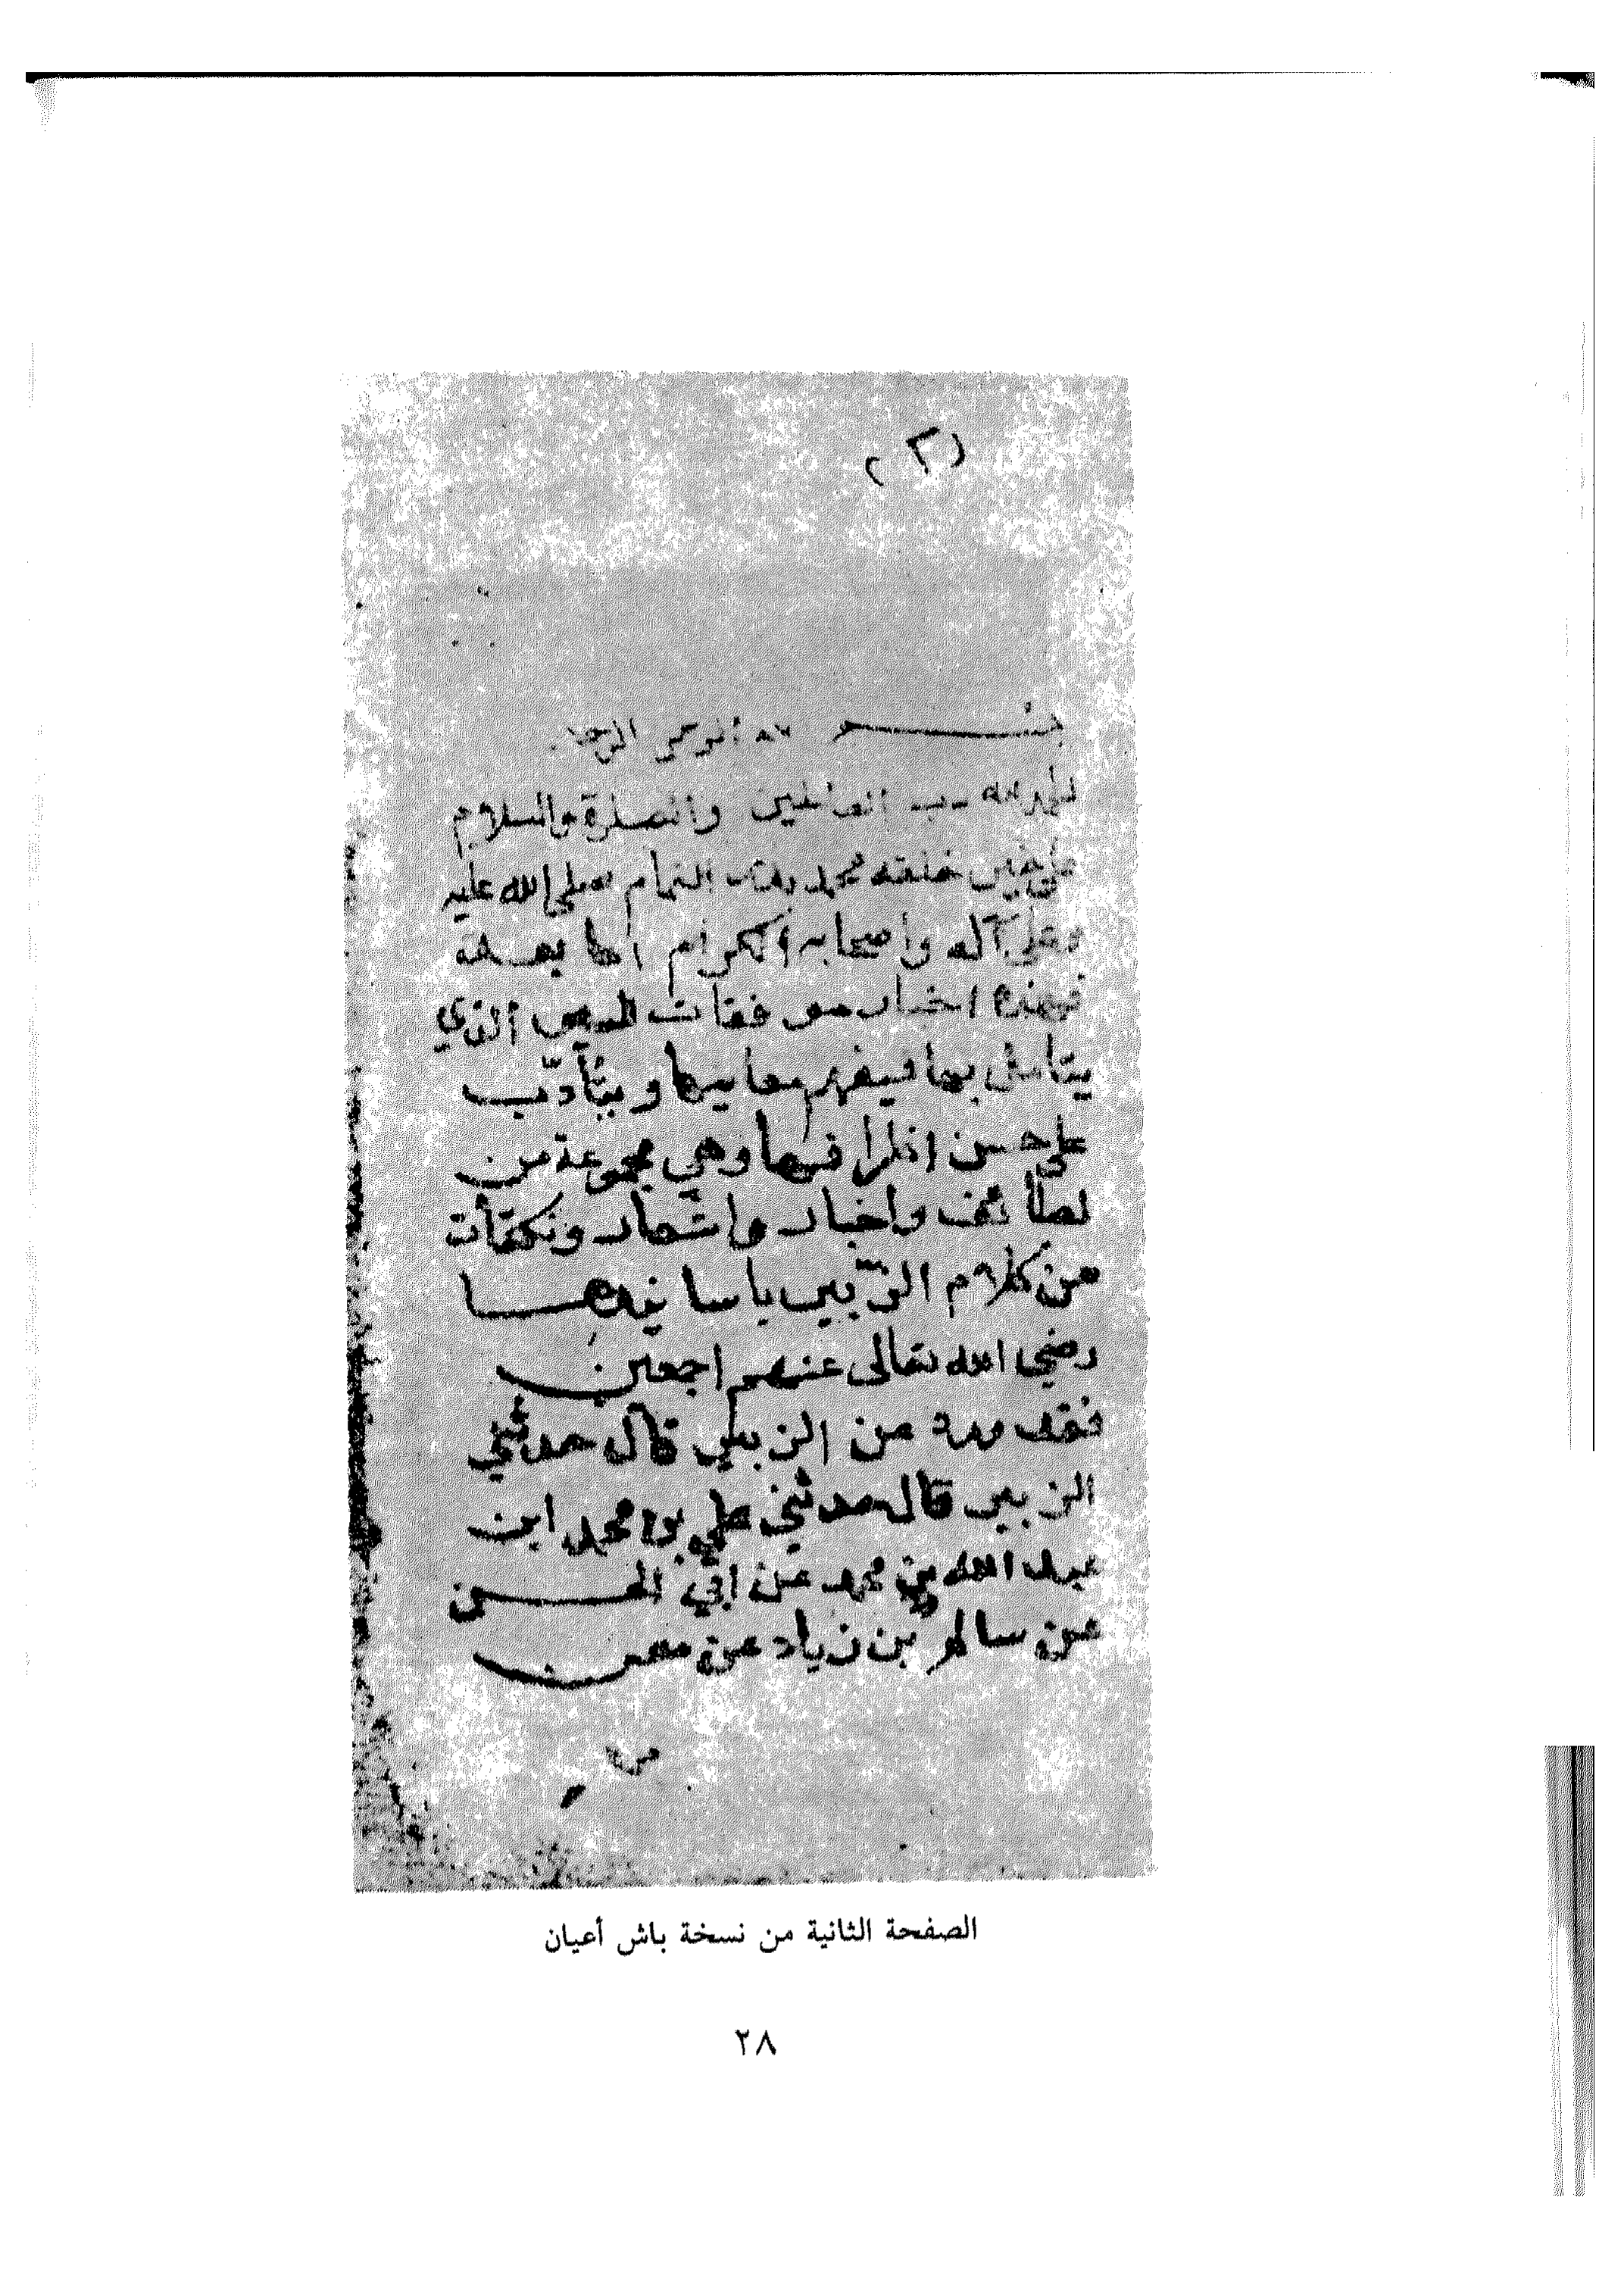 (٢)
بسم الله الرحمن الرحيم
الحمد لله رب العالمين والصلاة والسلام
على خير خلقه محمد التمام صلى الله عليه
وعلى آله واصحابه الكرام اما بعد
فهذه اخبار موفقات الذي
يتامل بها فيفهم معانيها ويتأدب
على حسن فيها وهي مجموعة من
لطائف واخبار واشعار ونكتات
من كلام الزبير باسانيدها
رضي الله تعالى عنهم اجمعين
فقد ورد عن الزبير قال حدثني
الزبير قال حدثني علي بن محمد ابن
عبد الله بن محمد عن ابي الحسن
عن سالم بن زياد عن معن
الصفحة الثانية من نسخة باش أعيان
٢٨